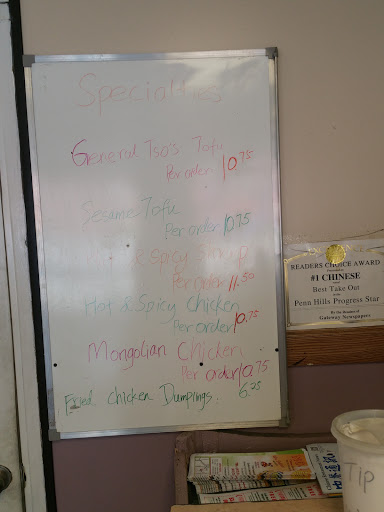 Specialties
General Tso's Tofu
Per order 10.75
Sesame Tofu
Per order 10.75
& Spicy Shrimp
Per order 11.50
Hot & Spicy Chicken
Per order 10.75
Mongolian Chicken
Per order 10.75
Fried Chicken Dumplings. 6.25
READERS CHOICE AWARD
#1 CHINESE
Best Take Out
Penn Hills Progress Star
By the Readers of
Gateway Newspapers
Tip